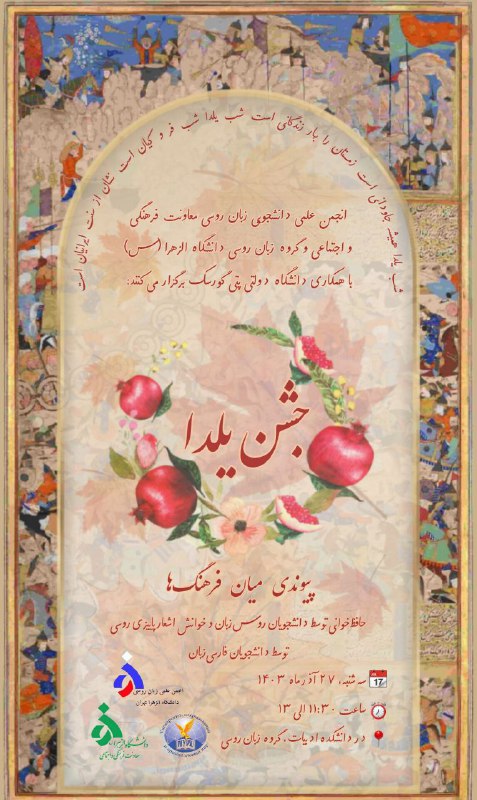 شب یلدا همیشه جاودانی است زمستان را بهار زندگانی است شب یلدا شب فر و کیان است نشان از سنت ایرانیان است
انجمن علمی دانشجوی زبان روسی معاونت فرهنگی
و اجتماعی و گروه زبان روسی دانشگاه الزهرا (س)
با همکاری دانشگاه دولتی پتی گورسک برگزار می کنند:
جشن یلدا
پیوندی میان فرهنگ‌ها
حافظ خوانی توسط دانشجویان روس زبان و خوانش اشعار پاییزی روسی
توسط دانشجویان فارسی زبان
سه شنبه، ۲۷ آذر ماه ۱۴۰۳
ساعت ۱۱:۳۰ الی ۱۳
در دانشکده ادبیات، گروه زبان روسی
انجمن علمی زبان روسی
دانشگاه الزهرا تهران
دانشگاه الزهرا
معاونت فرهنگی و اجتماعی